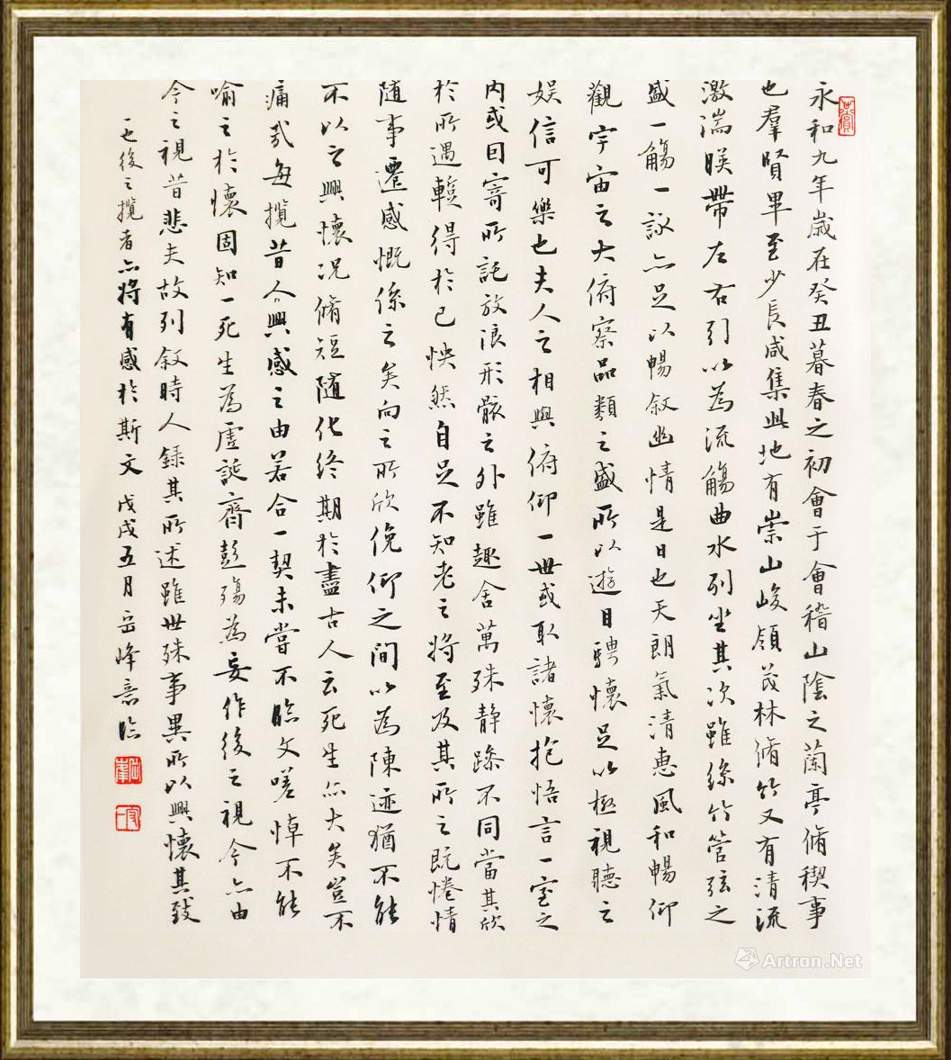 永和九年歲在癸丑暮春之初會于會稽山陰之蘭亭脩稧事
也羣賢畢至少長咸集此地有崇山峻領茂林脩竹又有清流
激湍暎帶左右引以為流觴曲水列坐其次雖絲竹管弦之
盛一觴一詠亦足以暢敘幽情是日也天朗氣清惠風和暢仰
觀宇宙之大俯察品類之盛所以遊目騁懷足以極視聽之
娛信可樂也夫人之相與俯仰一世或取諸懷抱悟言一室之
內或因寄所託放浪形骸之外雖趣舍萬殊静躁不同當其欣
於所遇蹔得於己怏然自足不知老之將至及其所之既惓情
隨事遷感慨係之矣向之所欣俛仰之間以為陳迹猶不能
不以之興懷況脩短隨化終期於盡古人云死生亦大矣豈不
痛哉每攬昔人興感之由若合一契未嘗不臨文嗟悼不能
喻之於懷固知一死生為虛誕齊彭殤為妄作後之視今亦由
今之視昔悲夫故列敘時人錄其所述雖世殊事異所以興懷其致
一也後之攬者亦將有感於斯文 戊戌五月岳峰意臨
Artron.Net